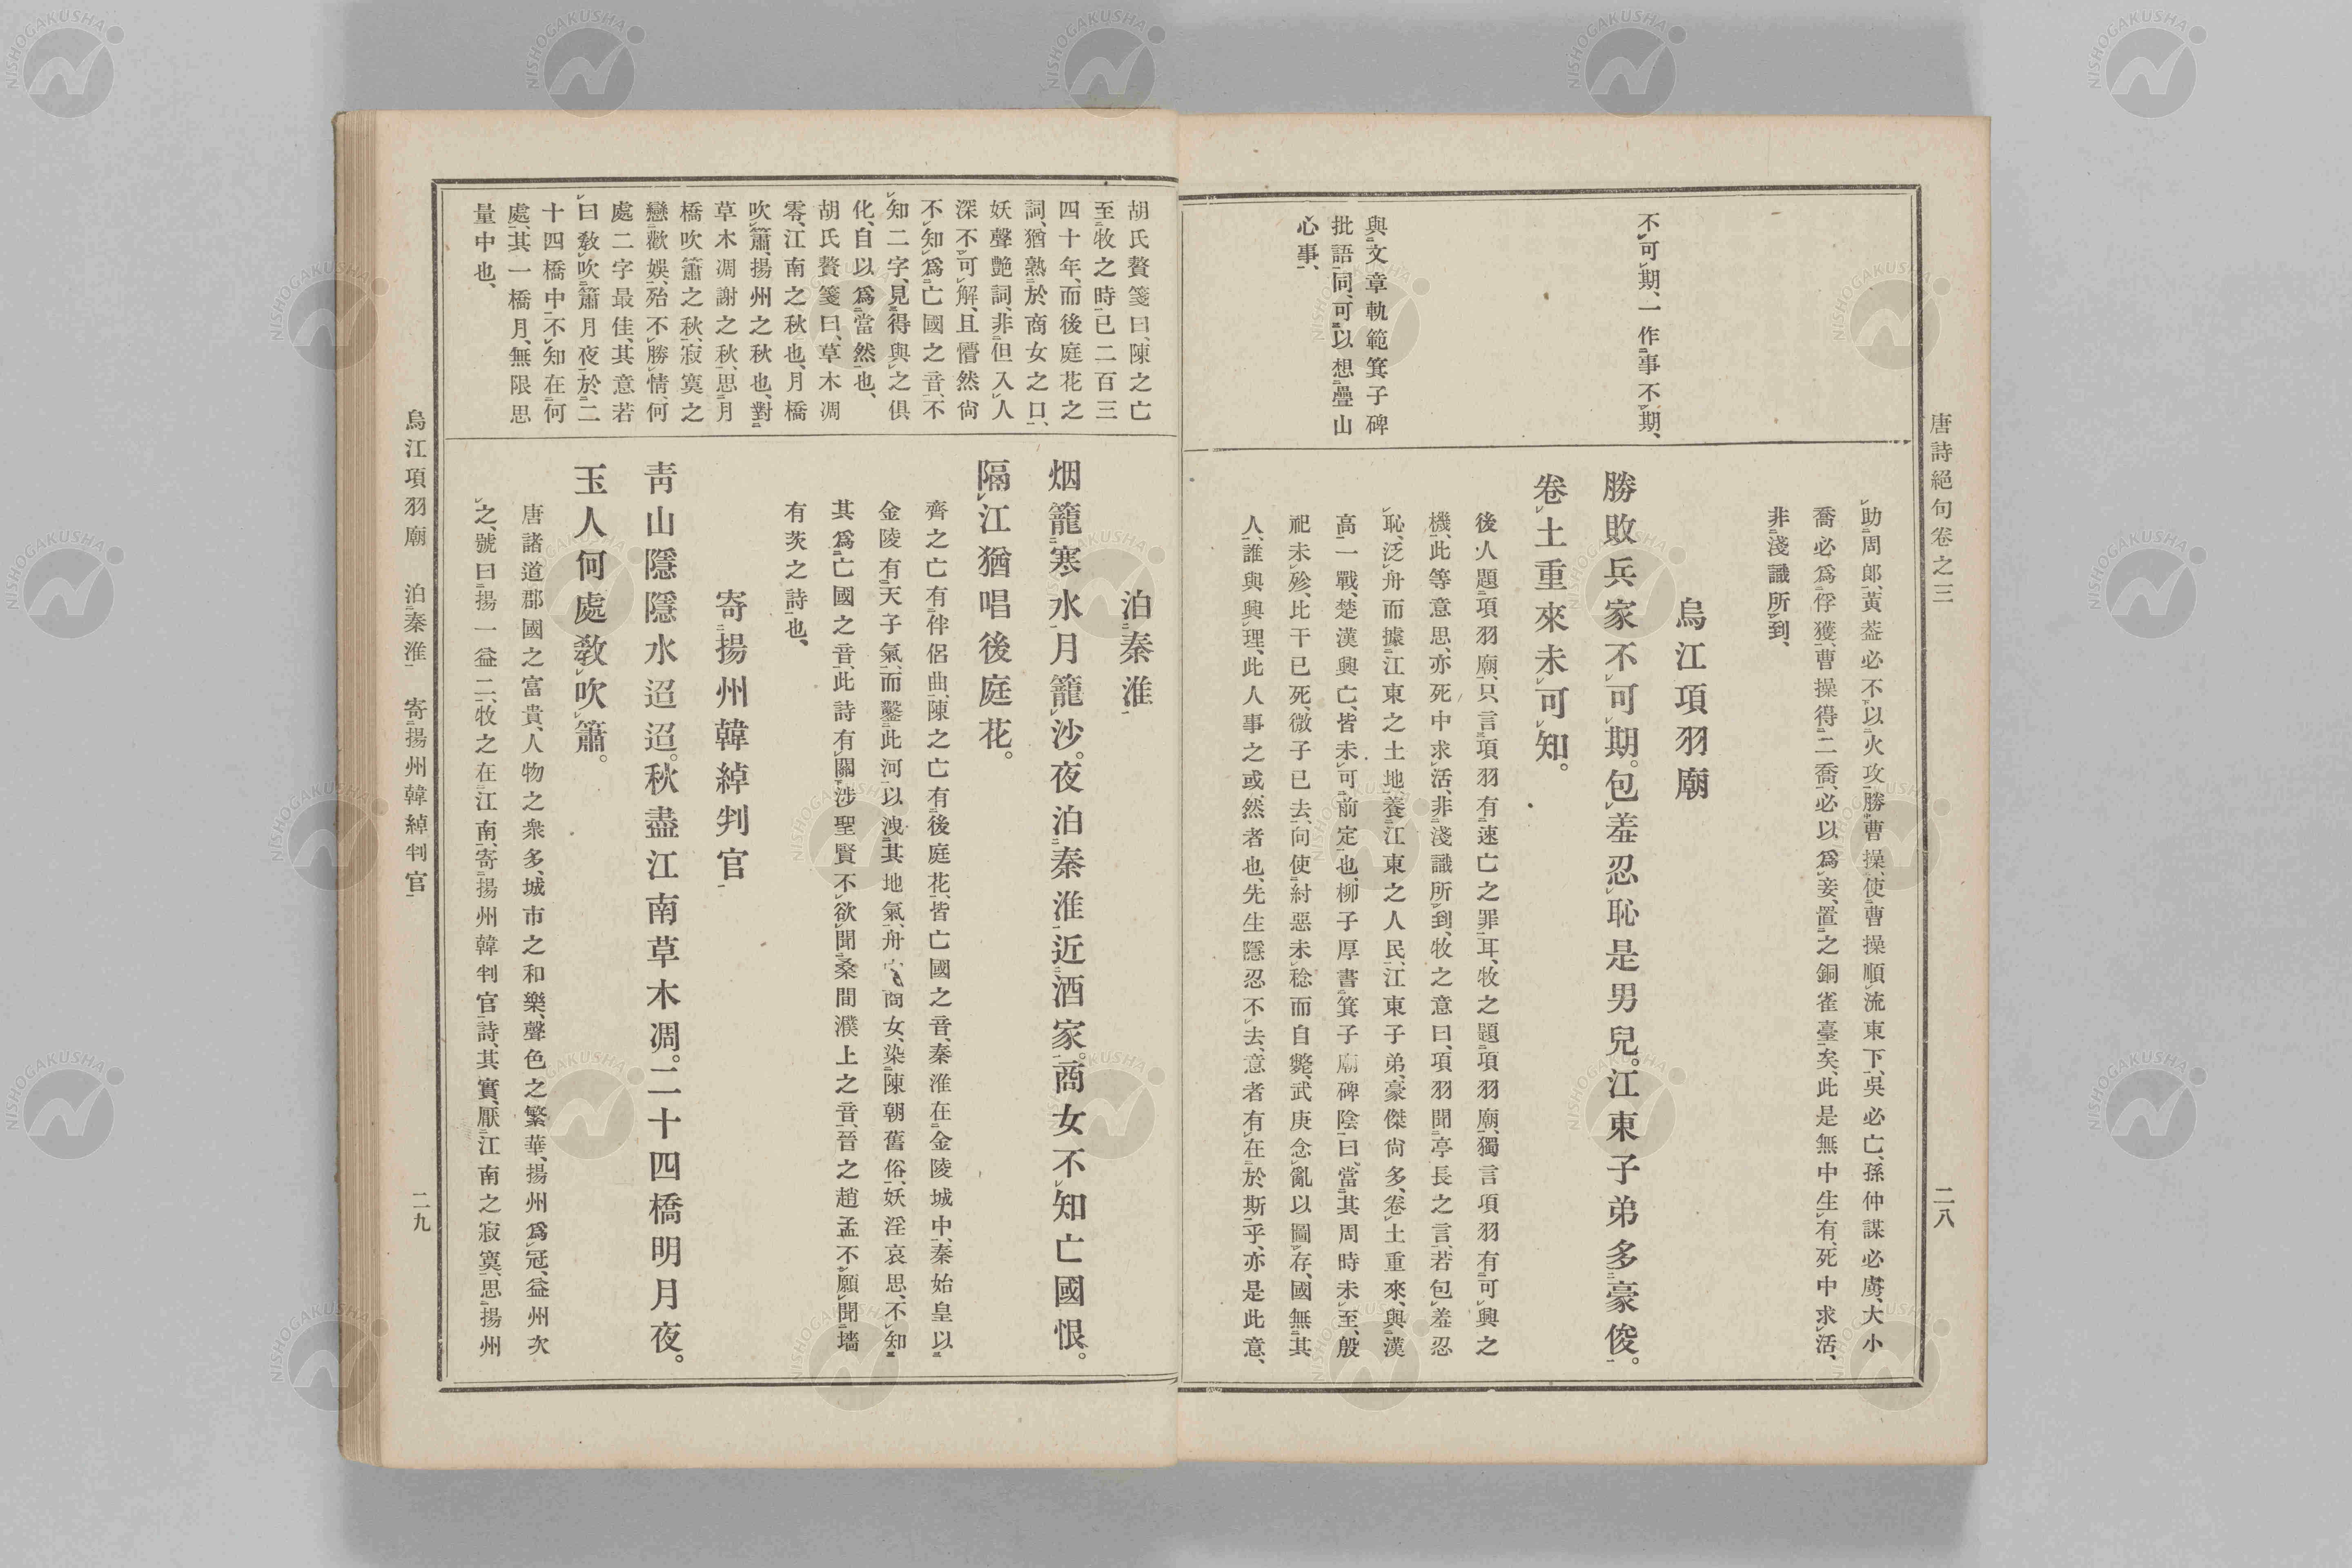 唐詩絕句卷之三
二八
不可期、一作事不期、
與文章軌範箕子碑
批語同、可以想疊山
心事、
助周郎、黃葢必不以火攻勝曹操、使曹操順流東下、吳必亡、孫仲謀必虜、大小
喬必爲俘獲、曹操得二喬、必以爲妾、置之銅雀臺矣、此是無中生有、死中求活、
非淺識所到、
烏江項羽廟
勝敗兵家不可期。包羞忍恥是男兒。江東子弟多豪俊。
卷土重來未可知。
後人題項羽廟、只言項羽有速亡之罪耳、牧之題項羽廟、獨言項羽有可興之
機、此等意思、亦死中求活、非淺識所到、牧之意曰、項羽聞亭長之言、若包羞忍
恥、泛舟而據江東之土地、養江東之人民、江東子弟豪傑尙多、卷土重來、與漢
高一戰、楚漢興亡、皆未可前定也、柳子厚書箕子廟碑陰曰、當其周時未至、殷
祀未殄、比干已死、微子已去、向使紂惡未稔而自斃、武庚念亂以圖存、國無其
人、誰與興理、此人事之或然者也、先生隱忍不去、意者有在於斯乎、亦是此意、
胡氏贅箋曰、陳之亡
至牧之時已二百三
四十年、而後庭花之
詞、猶熟於商女之口、
妖聲艶詞、非但入人
深不可解、且懵然尙
不知爲亡國之音、不
知二字、見得與之俱
化、自以爲當然也、
胡氏贅箋曰、草木凋
零、江南之秋也、月橋
吹簫、揚州之秋也、對
草木凋謝之秋、思月
橋吹簫之秋、寂寞之
戀歡娛、殆不勝情、何
處二字最佳、其意若
曰敎吹簫月夜於二
十四橋中、不知在何
處、其一橋月、無限思
量中也、
泊秦淮
烟籠寒水月籠沙。夜泊秦淮近酒家。商女不知亡國恨。
隔江猶唱後庭花。
齊之亡有伴侶曲、陳之亡有後庭花、皆亡國之音、秦淮在金陵城中、秦始皇以
金陵有天子氣、而鑿此河以洩其地氣、舟 商女、染陳朝舊俗、妖淫哀思、不知
其爲亡國之音、此詩有關涉聖賢不欲聞桑間濮上之音、晉之趙孟不願聞墻
有茨之詩也、
寄揚州韓綽判官
靑山隱隱水迢迢。秋盡江南草木凋。二十四橋明月夜。
玉人何處敎吹簫。
唐諸道郡國之富貴、人物之衆多、城市之和樂、聲色之繁華、揚州爲冠、益州次
之、號曰揚一益二、牧之在江南、寄揚州韓判官詩、其實厭江南之寂寞、思揚州
烏江項羽廟　泊秦淮　寄揚州韓綽判官
二九